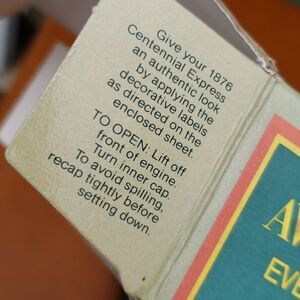 Give your 1876
Centennial Express
an authentic look
by applying the
decorative labels
as directed on the
enclosed sheet.
TO OPEN: Lift off
front of engine.
Turn inner cap.
To avoid spilling,
recap tightly before
setting down.
AV
EVE